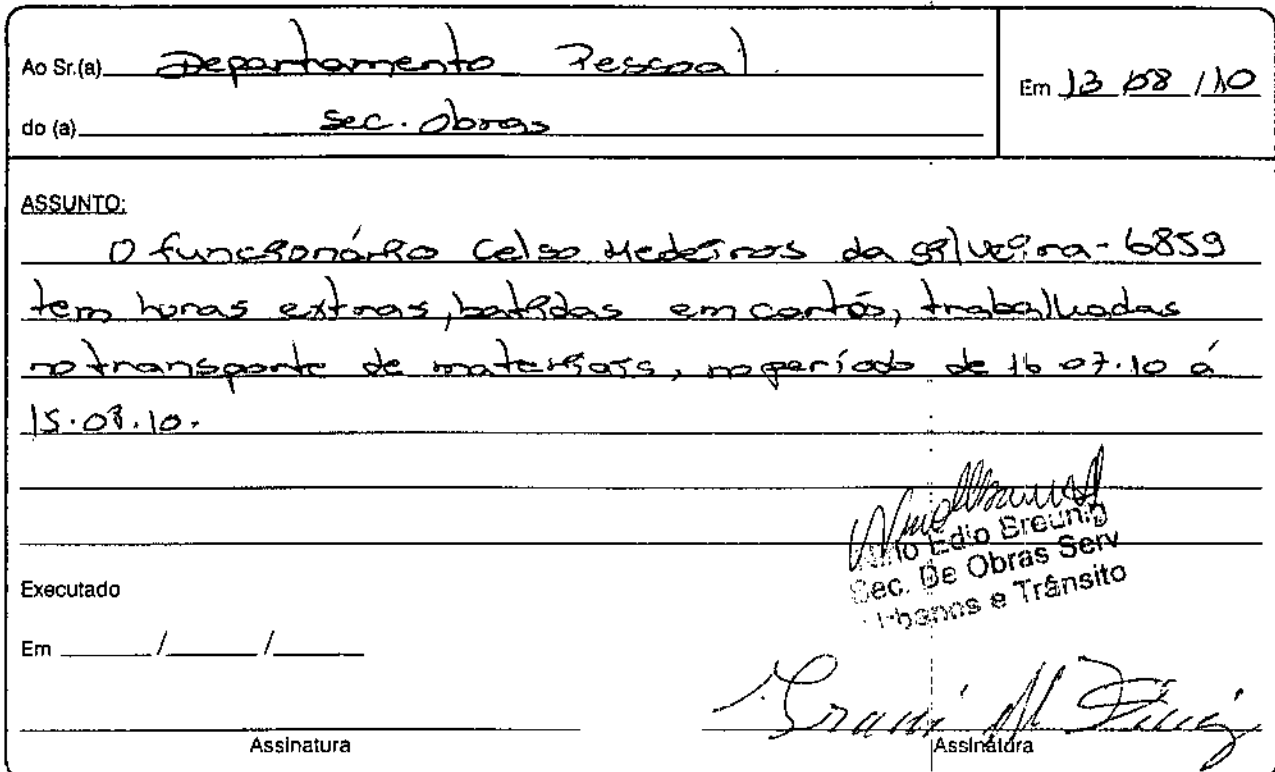 Ao Sr.(a) Departamento Pessoal.
do (a) Sec. Obras
Em 13 08 / 10
ASSUNTO:
O funcionário Celso Medeiros da Silveira - 6859
tem horas extras, batidas em cartão, trabalhadas
no transporte de materiais, no período de 16.07.10 á
15.08.10.
Edio Breunig
Sec. De Obras Serv
Urbanos e Trânsito
Executado
Em ____/____/____
Assinatura
Assinatura